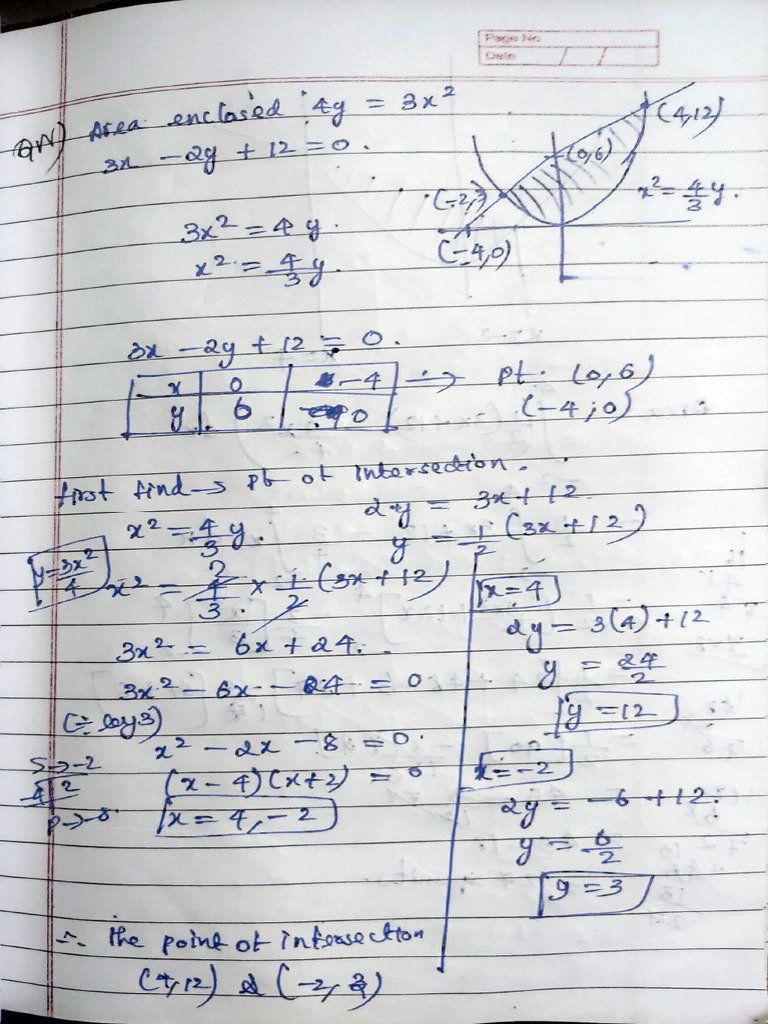 Page No
Date / /
QN) Area enclosed 4y = 3x²
3x - 2y + 12 = 0.
(4,12)
(0,6)
(-2,3)
x² = 4/3 y.
(-4,0)
3x² = 4y
x² = 4/3 y.
3x - 2y + 12 = 0.
x | 0 | -4 → pt. (0,6)
y | 6 | 0 (-4,0)
first find → pt of intersection.
x² = 4/3 y. 2y = 3x + 12
y = 1/2 (3x + 12)
y = 3x²/4
x² = 4/3 × 1/2 (3x + 12)
3x² = 6x + 24.
3x² - 6x - 24 = 0
(÷ by 3)
x² - 2x - 8 = 0.
S → -2
-4 | 2
P → -8
(x - 4)(x + 2) = 0
x = 4, -2
x = 4
2y = 3(4) + 12
y = 24/2
y = 12
x = -2
2y = -6 + 12.
y = 6/2
y = 3
∴ the point of intersection
(4,12) & (-2, 3)